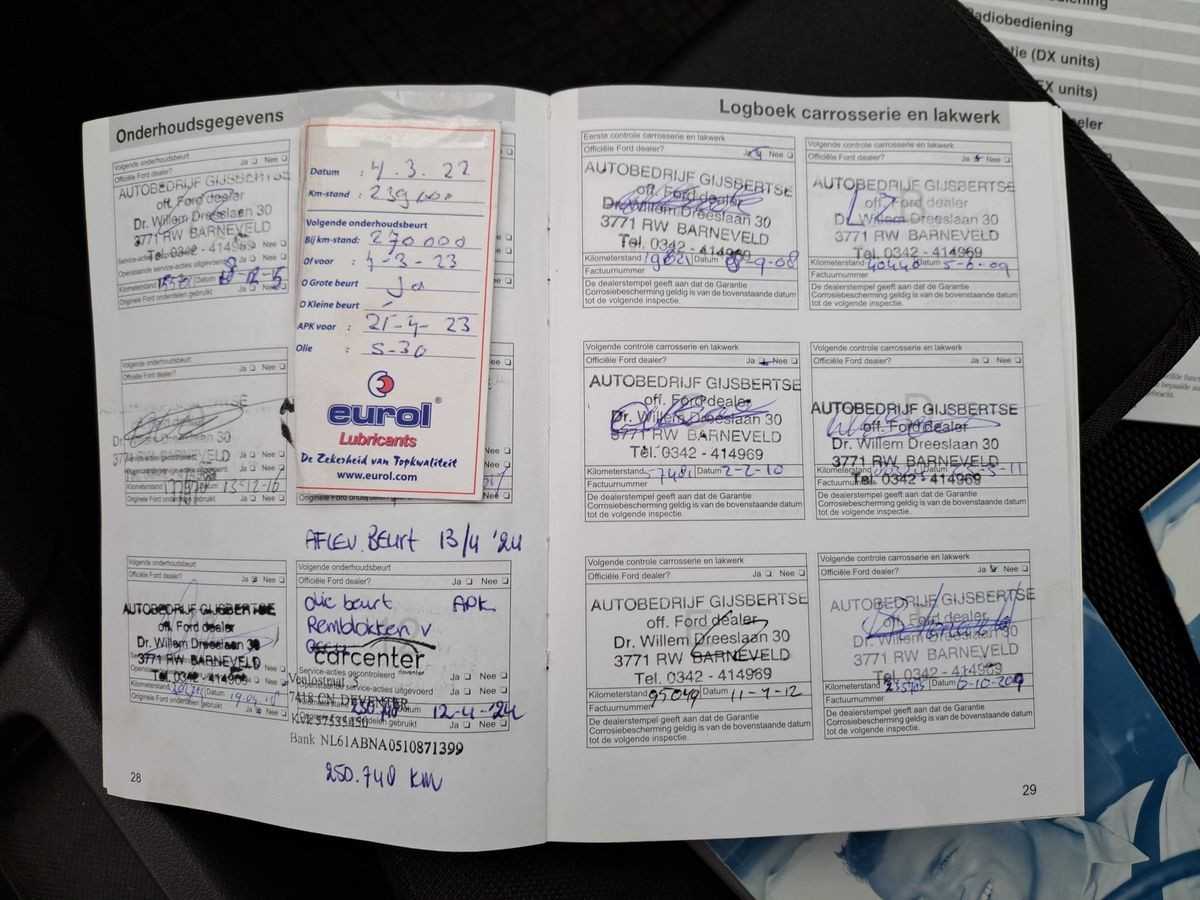 Onderhoudsgegevens
Volgende onderhoudsbeurt
Officiële Ford dealer? Ja Nee
AUTOBEDRIJF GIJSBERTSE
off. Ford dealer
Dr. Willem Dreeslaan 30
3771 RW BARNEVELD
Tel. 0342 - 414969
Kilometerstand Datum
Originele Ford onderdelen gebruikt Ja Nee
Datum : 4.3.22
Km-stand : 239000
Volgende onderhoudsbeurt
Bij km-stand: 270000
Of voor : 4-3-23
O Grote beurt : ja
O Kleine beurt :
APK voor : 21-4-23
Olie : 5-30
eurol®
Lubricants
De Zekerheid van Topkwaliteit
www.eurol.com
Volgende onderhoudsbeurt
Officiële Ford dealer? Ja Nee
Dr. Willem Dreeslaan 30
3771 RW BARNEVELD
Kilometerstand Datum 13-12-16
Originele Ford onderdelen gebruikt Ja Nee
AFLEV. BEURT 13/4 '24
Volgende onderhoudsbeurt
Officiële Ford dealer? Ja Nee
AUTOBEDRIJF GIJSBERTSE
off. Ford dealer
Dr. Willem Dreeslaan 30
3771 RW BARNEVELD
Tel. 0342 - 414969
Kilometerstand Datum
Originele Ford onderdelen gebruikt Ja Nee
Volgende onderhoudsbeurt
Officiële Ford dealer? Ja Nee
Olie beurt APK
Remblokken v
carcenter
deventer
Service-acties gecontroleerd Ja Nee
service-acties uitgevoerd Ja Nee
7418 DEVENTER
12-4-'24
gebruikt Ja Nee
Bank NL61ABNA0510871399
250.740 KM
28
Logboek carrosserie en lakwerk
Eerste controle carrosserie en lakwerk
Officiële Ford dealer? Ja Nee
AUTOBEDRIJF GIJSBERTSE
off. Ford dealer
Dr. Willem Dreeslaan 30
3771 RW BARNEVELD
Tel. 0342 - 414969
Kilometerstand Datum
Factuurnummer
De dealerstempel geeft aan dat de Garantie
Corrosiebescherming geldig is van de bovenstaande datum
tot de volgende inspectie.
Volgende controle carrosserie en lakwerk
Officiële Ford dealer? Ja Nee
AUTOBEDRIJF GIJSBERTSE
off. Ford dealer
Dr. Willem Dreeslaan 30
3771 RW BARNEVELD
Tel. 0342 - 414969
Kilometerstand 40440 Datum
Factuurnummer
De dealerstempel geeft aan dat de Garantie
Corrosiebescherming geldig is van de bovenstaande datum
tot de volgende inspectie.
Volgende controle carrosserie en lakwerk
Officiële Ford dealer? Ja Nee
AUTOBEDRIJF GIJSBERTSE
off. Ford dealer
Dr. Willem Dreeslaan 30
3771 RW BARNEVELD
Tel. 0342 - 414969
Kilometerstand Datum 2-2-10
Factuurnummer
De dealerstempel geeft aan dat de Garantie
Corrosiebescherming geldig is van de bovenstaande datum
tot de volgende inspectie.
Volgende controle carrosserie en lakwerk
Officiële Ford dealer? Ja Nee
AUTOBEDRIJF GIJSBERTSE
off. Ford dealer
Dr. Willem Dreeslaan 30
3771 RW BARNEVELD
Tel. 0342 - 414969
Kilometerstand Datum
Factuurnummer
De dealerstempel geeft aan dat de Garantie
Corrosiebescherming geldig is van de bovenstaande datum
tot de volgende inspectie.
Volgende controle carrosserie en lakwerk
Officiële Ford dealer? Ja Nee
AUTOBEDRIJF GIJSBERTSE
off. Ford dealer
Dr. Willem Dreeslaan 30
3771 RW BARNEVELD
Tel. 0342 - 414969
Kilometerstand 95049 Datum
Factuurnummer
De dealerstempel geeft aan dat de Garantie
Corrosiebescherming geldig is van de bovenstaande datum
tot de volgende inspectie.
Volgende controle carrosserie en lakwerk
Officiële Ford dealer? Ja Nee
AUTOBEDRIJF GIJSBERTSE
off. Ford dealer
Dr. Willem Dreeslaan 30
3771 RW BARNEVELD
Tel. 0342 - 414969
Kilometerstand Datum
Factuurnummer
De dealerstempel geeft aan dat de Garantie
Corrosiebescherming geldig is van de bovenstaande datum
tot de volgende inspectie.
29
(DX units)
units)